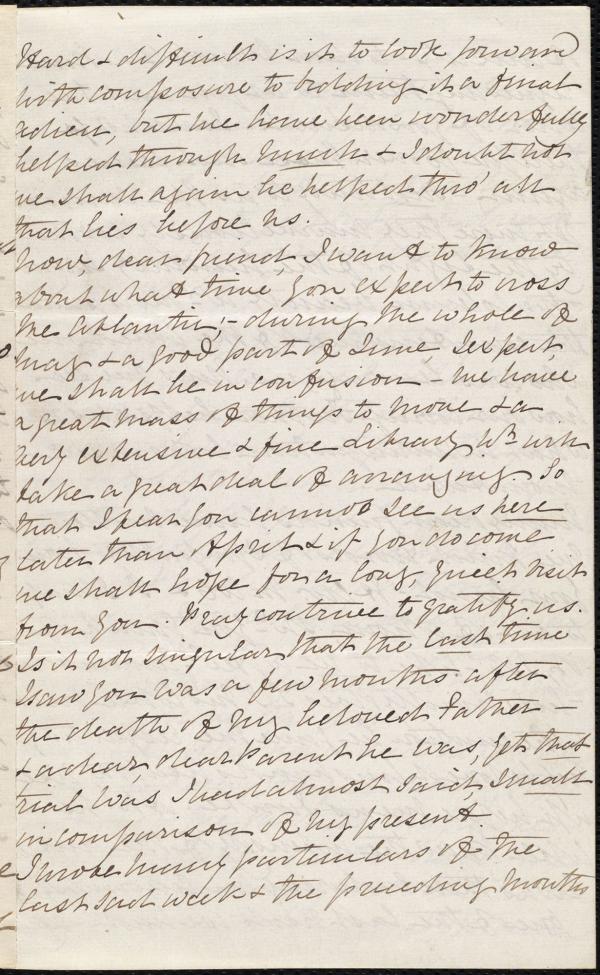 Hard & difficult is it to look forward
with composure to bidding it a final
adieu, but we have been wonderfully
helped through much & I doubt not
we shall again be helped thro' all
that lies before us.
Now, dear friend, I want to know
about what time you expect to cross
the Atlantic; - during the whole of
May & a good part of June, I expect,
we shall be in confusion - we have
a great mass of things to move & a
very extensive & fine Library wh will
take a great deal of arranging. So
that I fear you cannot see us here
later than April & if you do come
we shall hope for a long, quiet visit
from you. Pray contrive to gratify us.
Is it not singular that the last time
I saw you was a few months after
the death of my beloved Father -
& a dear, dear Parent he was, yet that
trial was I had almost said small
in comparison of my present.
I wrote many particulars of the
last sad week & the preceding months